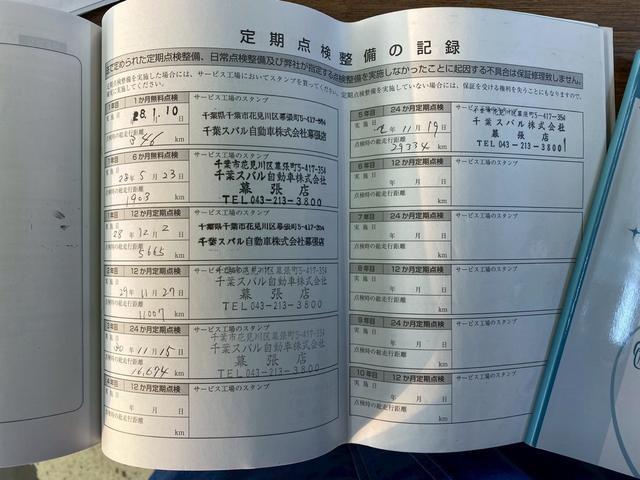 定期点検整備の記録
で定められた定期点検整備、日常点検整備及び弊社が指定する点検整備を実施しなかったことに起因する不具合は保証修理致しません。
点検整備を実施した場合には、サービス工場においてスタンプを買ってください。
定期点検整備を実施していない場合には、保証を受ける権利を失うことにもなりますので、
1か月無料点検
サービス工場のスタンプ
実施日
28.1.10
点検時の総走行距離
846 km
千葉県千葉市花見川区幕張町5-417-354
千葉スバル自動車株式会社幕張店
6か月無料点検
サービス工場のスタンプ
実施日
28年5月23日
点検時の総走行距離
1903 km
千葉市花見川区幕張町5-417-354
千葉スバル自動車株式会社
幕張店
TEL 043-213-3800
1年目 12か月定期点検
サービス工場のスタンプ
実施日
28年12月2日
点検時の総走行距離
5665 km
千葉県千葉市花見川区幕張町5-417-354
千葉スバル自動車株式会社幕張店
2年目 12か月定期点検
サービス工場のスタンプ
実施日
29年11月27日
点検時の総走行距離
11007 km
千葉市花見川区幕張町5-417-354
千葉スバル自動車株式会社
幕張店
TEL 043-213-3800
3年目 24か月定期点検
サービス工場のスタンプ
実施日
30年11月15日
点検時の総走行距離
16,674 km
千葉市花見川区幕張町5-417-354
千葉スバル自動車株式会社
幕張店
TEL 043-213-3800
4年目 12か月定期点検
サービス工場のスタンプ
実施日
年 月 日
点検時の総走行距離
km
5年目 24か月定期点検
サービス工場のスタンプ
実施日
年11月19日
点検時の総走行距離
29334 km
千葉市花見川区幕張町5-417-354
千葉スバル自動車株式会社
幕張店
TEL 043-213-3800
6年目 12か月定期点検
サービス工場のスタンプ
実施日
年 月 日
点検時の総走行距離
km
7年目 24か月定期点検
サービス工場のスタンプ
実施日
年 月 日
点検時の総走行距離
km
8年目 12か月定期点検
サービス工場のスタンプ
実施日
年 月 日
点検時の総走行距離
km
9年目 24か月定期点検
サービス工場のスタンプ
実施日
年 月 日
点検時の総走行距離
km
10年目 12か月定期点検
サービス工場のスタンプ
実施日
年 月 日
点検時の総走行距離
km